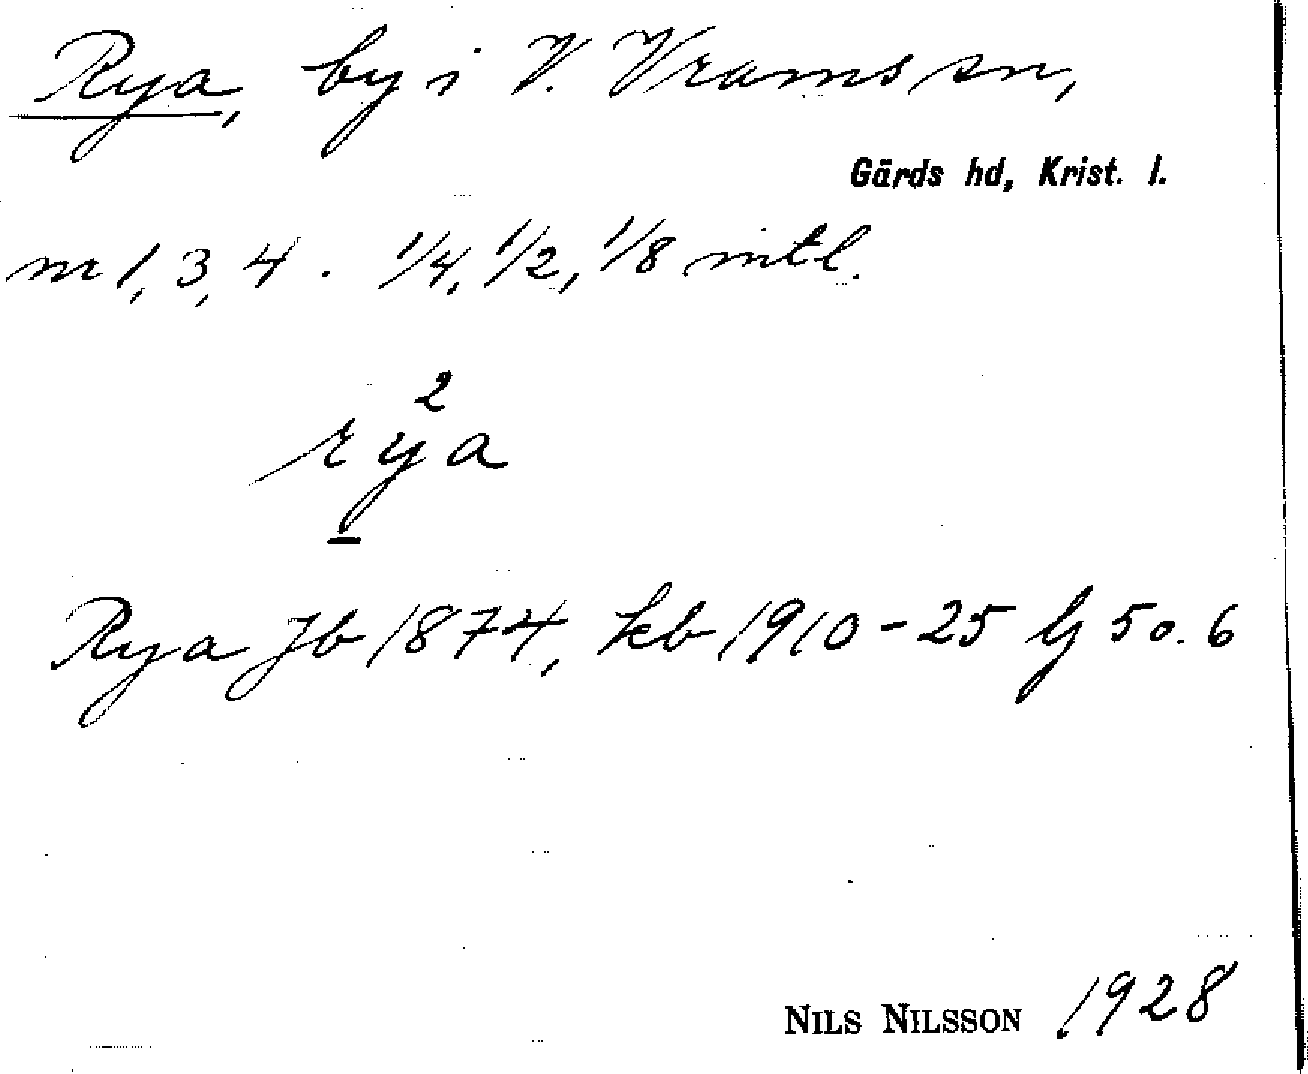 Rya, by i V. Vrams sn,
Gärds hd, Krist. l.
nr 1, 3, 4. 1/4, 1/2, 1/8 mtl.
2
rya
Rya Jb 1874, kb 1910-25 G 50. 6
NILS NILSSON 1928